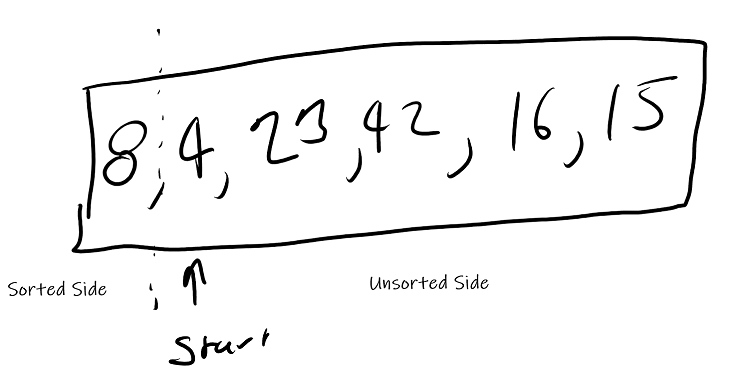 8, 4, 23, 42, 16, 15
Sorted Side
Unsorted Side
Start